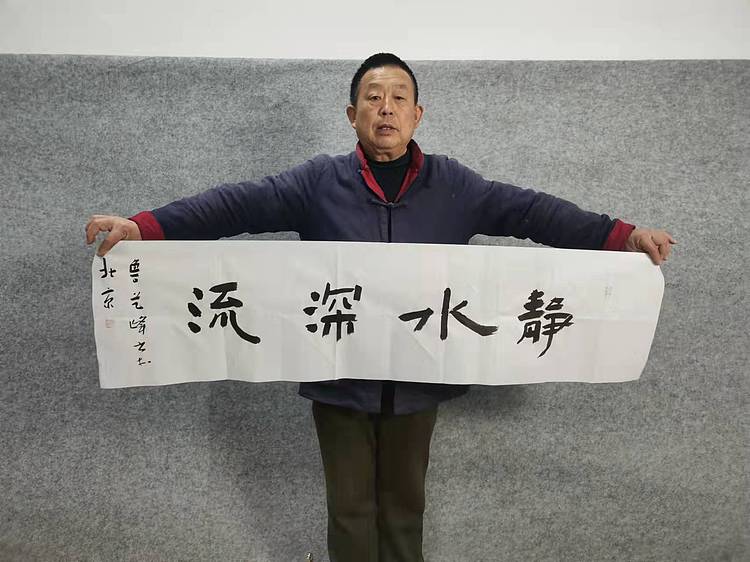 静水深流
鲁艺峰书于
北京